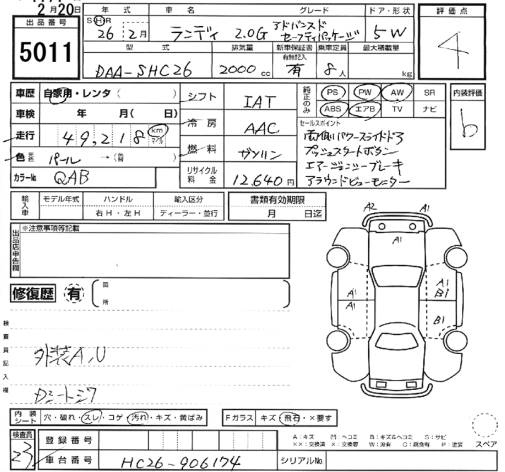 2月20日
出品番号
5011
年式
グレード
ドア・形状
評価点
SHR
26年2月
ランディ 2.0G アドバンスドセーフティパッケージ
5W
4
型式
排気量
新車保証書
有無記入
乗車定員
最大積載量
DAA-SHC26
2000cc
有
8人
kg
車歴
自家用・レンタ( )
シフト
IAT
純正のみ
PS
PW
AW
SR
ABS
エアB
TV
ナビ
内装評価
b
車検
年 月(日)
冷房
AAC
セールスポイント
両側パワースライドドア
プッシュスタートボタン
エマージェンシーブレーキ
アラウンドビューモニター
走行
49,218km
燃料
ガソリン
色
パール
→(
)
カラーNo.
QAB
リサイクル料金
12,640円
輸入車
モデル年式
ハンドル
右H・左H
輸入区分
ディーラー・並行
書類有効期限
月 日迄
出品店申告欄
※注意事項等記載
修復歴
有
箇所
検査員記入欄
外装A,U
Dシートシワ
A2
A1
A1
A1
A1
A1
B1
B1
A1
スペア
内装シート
穴・破れ・スレ・コゲ・汚れ・キズ・黄ばみ
Fガラス
キズ・飛石・×要す
検査員
23
登録番号
車台番号
HC26-906174
シリアルNo.
A:キズ M:ヘコミ B:キズ&ヘコミ S:サビ